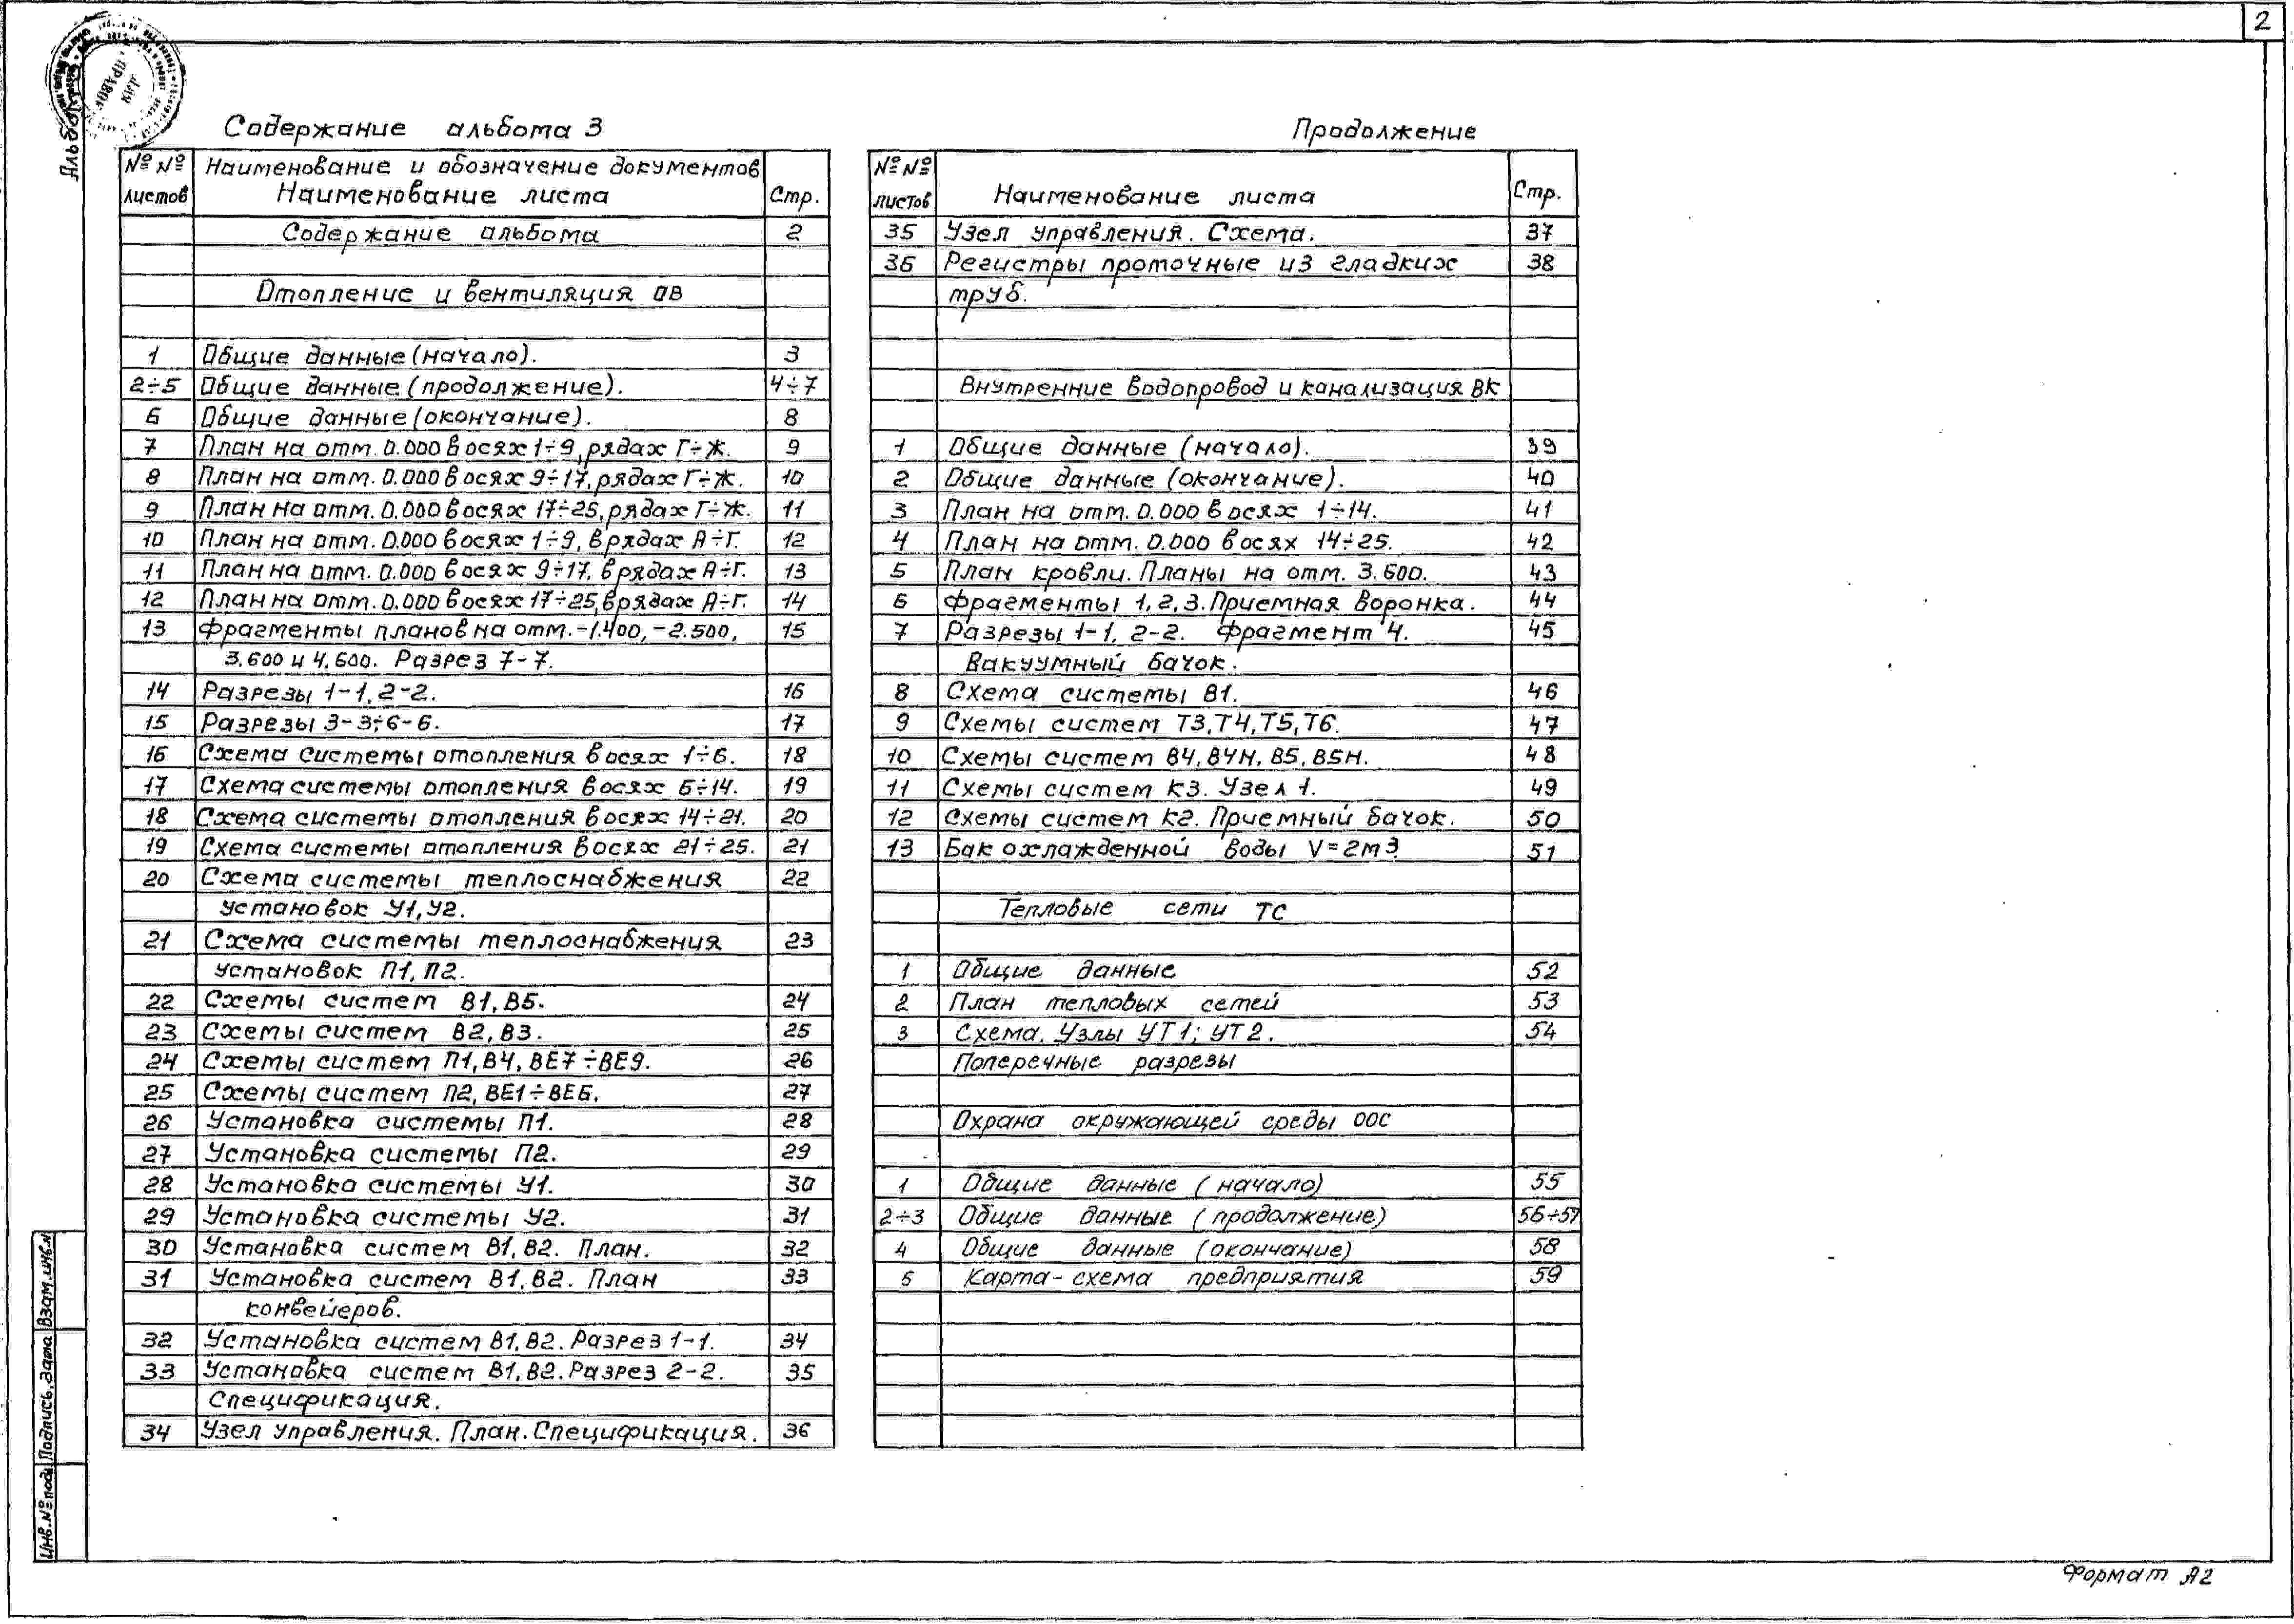 2
Содержание альбома 3
№№ листов Наименование и обозначение документов Наименование листа Стр.
Содержание альбома 2
Отопление и вентиляция ОВ
1 Общие данные (начало). 3
2÷5 Общие данные (продолжение). 4÷7
6 Общие данные (окончание). 8
7 План на отм. 0.000 в осях 1÷9, рядах Г÷Ж. 9
8 План на отм. 0.000 в осях 9÷17, рядах Г÷Ж. 10
9 План на отм. 0.000 в осях 17÷25, рядах Г÷Ж. 11
10 План на отм. 0.000 в осях 1÷9, в рядах А÷Г. 12
11 План на отм. 0.000 в осях 9÷17, в рядах А÷Г. 13
12 План на отм. 0.000 в осях 17÷25, в рядах А÷Г. 14
13 Фрагменты планов на отм. -1.400, -2.500, 15
3.600 и 4.600. Разрез 7-7.
14 Разрезы 1-1, 2-2. 16
15 Разрезы 3-3÷6-6. 17
16 Схема системы отопления в осях 1÷6. 18
17 Схема системы отопления в осях 6÷14. 19
18 Схема системы отопления в осях 14÷21. 20
19 Схема системы отопления в осях 21÷25. 21
20 Схема системы теплоснабжения 22
установок У1, У2.
21 Схема системы теплоснабжения 23
установок П1, П2.
22 Схемы систем В1, В5. 24
23 Схемы систем В2, В3. 25
24 Схемы систем П1, В4, ВЕ7÷ВЕ9. 26
25 Схемы систем П2, ВЕ1÷ВЕ6. 27
26 Установка системы П1. 28
27 Установка системы П2. 29
28 Установка системы У1. 30
29 Установка системы У2. 31
30 Установка систем В1, В2. План. 32
31 Установка систем В1, В2. План 33
конвейеров.
32 Установка систем В1, В2. Разрез 1-1. 34
33 Установка систем В1, В2. Разрез 2-2. 35
Спецификация.
34 Узел управления. План. Спецификация. 36
Продолжение
№№ листов Наименование листа Стр.
35 Узел управления. Схема. 37
36 Регистры проточные из гладких 38
труб.
Внутренние водопровод и канализация ВК
1 Общие данные (начало). 39
2 Общие данные (окончание). 40
3 План на отм. 0.000 в осях 1÷14. 41
4 План на отм. 0.000 в осях 14÷25. 42
5 План кровли. Планы на отм. 3.600. 43
6 Фрагменты 1, 2, 3. Приемная воронка. 44
7 Разрезы 1-1, 2-2. Фрагмент 4. 45
Вакуумный бачок.
8 Схема системы В1. 46
9 Схемы систем Т3, Т4, Т5, Т6. 47
10 Схемы систем В4, В4Н, В5, В5Н. 48
11 Схемы систем К3. Узел 1. 49
12 Схемы систем К2. Приемный бачок. 50
13 Бак охлажденной воды V=2м3. 51
Тепловые сети ТС
1 Общие данные 52
2 План тепловых сетей 53
3 Схема. Узлы УТ1; УТ2. 54
Поперечные разрезы
Охрана окружающей среды ООС
1 Общие данные (начало) 55
2÷3 Общие данные (продолжение) 56÷57
4 Общие данные (окончание) 58
5 Карта-схема предприятия 59
Инв. № подл. Подпись, дата Взам. инв. №
Формат А2